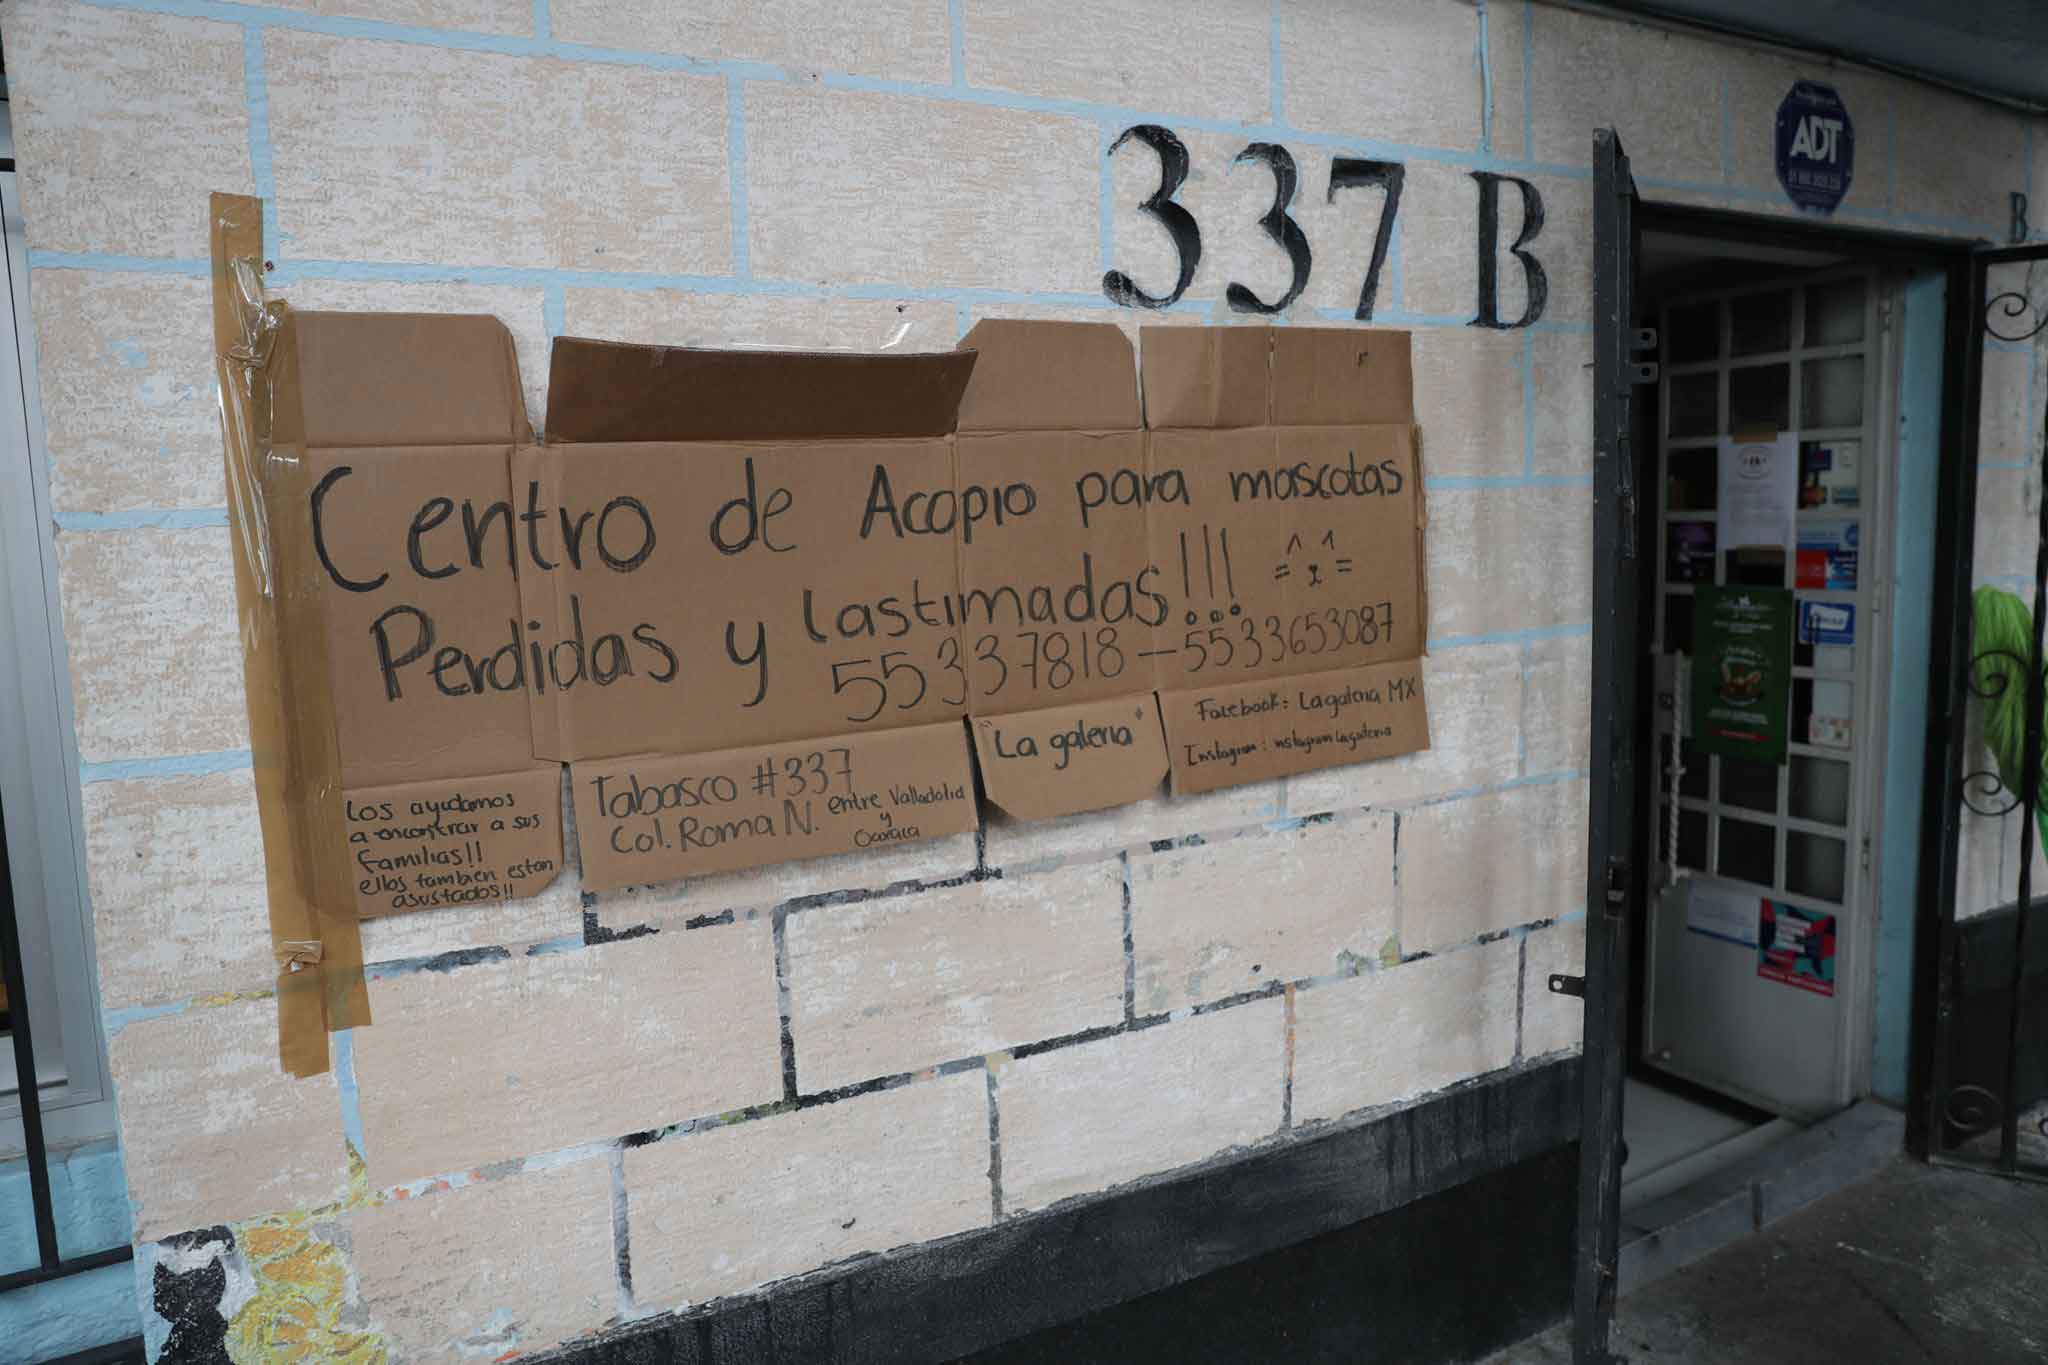 337 B
ADT
B
Centro de Acopio para mascotas
Perdidas y lastimadas!!!
55337818 – 5533653087
Los ayudamos
a encontrar a sus
familias!!
ellos tambien estan
asustados!!
Tabasco #337
Col. Roma N. entre Valladolid
y
Oaxaca
"La galeria"
Facebook: La galeria MX
Instagram: instagram lagaleria